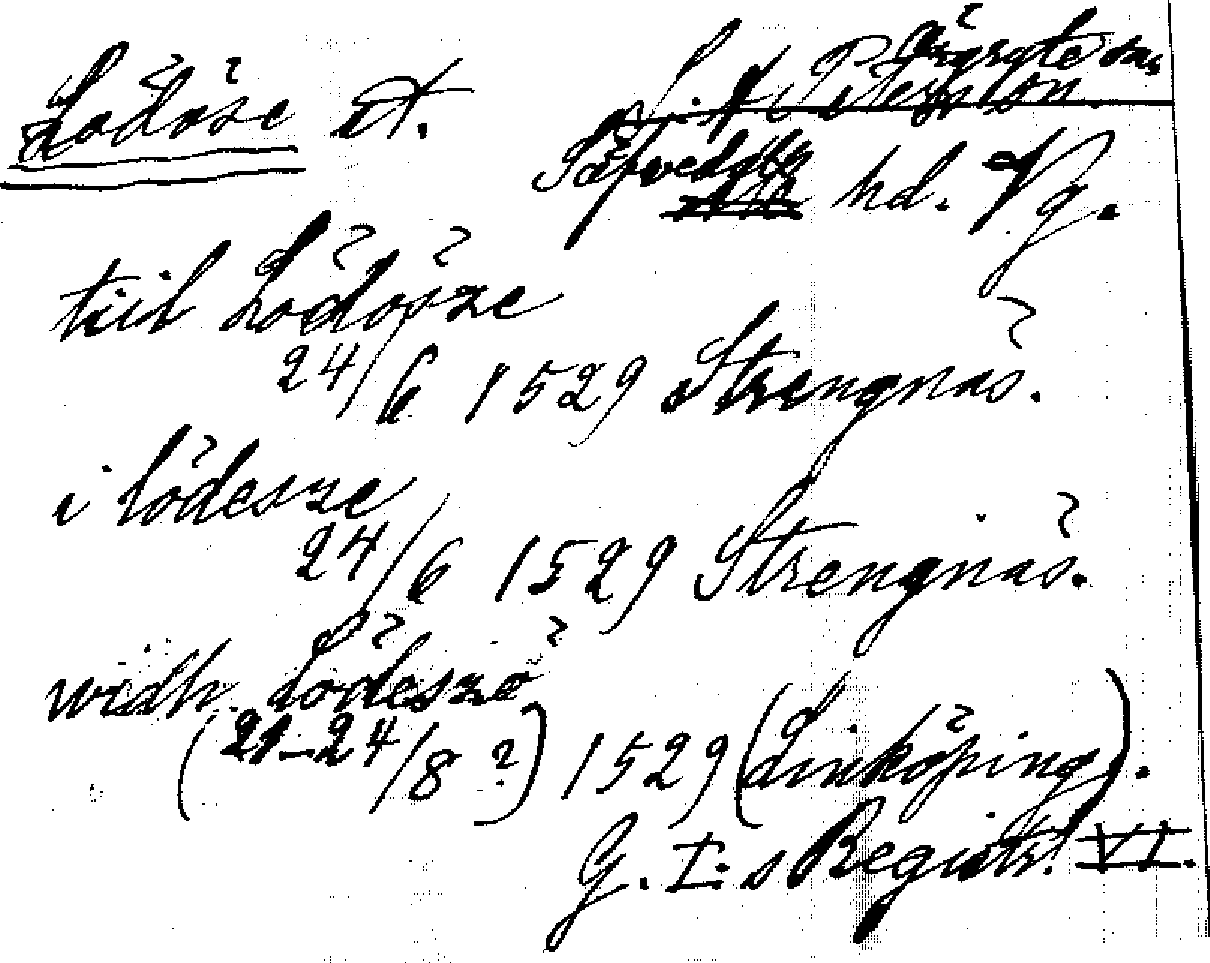 Lödöse st.
Örgryte sn,
Säfvedals hd. Vg.
tiil Lödösze
24/6 1529 Strengnäs.
i lödesze
24/6 1529 Strengnäs.
widh Lödeszö
(21–24/8 ?) 1529 (Linköping).
G. I:s Registr. VI.